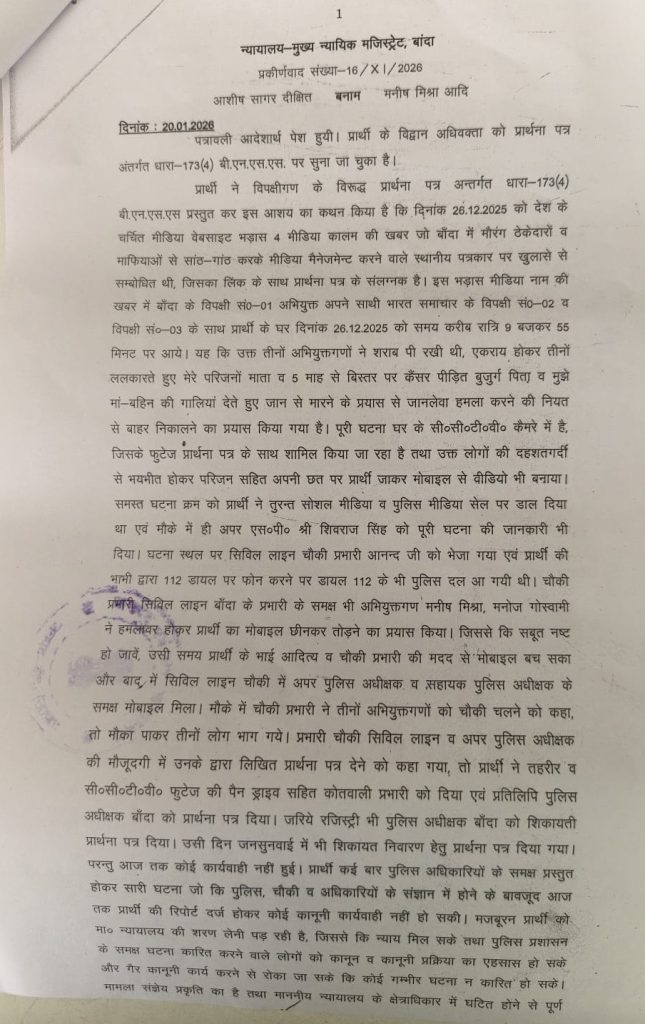 1
न्यायालय–मुख्य न्यायिक मजिस्ट्रेट, बांदा
प्रकीर्णवाद संख्या–16/XI/2026
आशीष सागर दीक्षित बनाम मनीष मिश्रा आदि
दिनांक : 20.01.2026
पत्रावली आदेशार्थ पेश हुयी। प्रार्थी के विद्वान अधिवक्ता को प्रार्थना पत्र
अंतर्गत धारा–173(4) बी.एन.एस.एस. पर सुना जा चुका है।
प्रार्थी ने विपक्षीगण के विरूद्ध प्रार्थना पत्र अन्तर्गत धारा–173(4)
बी.एन.एस.एस प्रस्तुत कर इस आशय का कथन किया है कि दिनांक 26.12.2025 को देश के
चर्चित मीडिया वेबसाइट भड़ास 4 मीडिया कालम की खबर जो बाँदा में मौरंग ठेकेदारों व
माफियाओं से सांठ–गांठ करके मीडिया मैनेजमेण्ट करने वाले स्थानीय पत्रकार पर खुलासे से
सम्बोधित थी, जिसका लिंक के साथ प्रार्थना पत्र के संलग्नक है। इस भड़ास मीडिया नाम की
खबर में बाँदा के विपक्षी सं0–01 अभियुक्त अपने साथी भारत समाचार के विपक्षी सं0–02 व
विपक्षी सं0–03 के साथ प्रार्थी के घर दिनांक 26.12.2025 को समय करीब रात्रि 9 बजकर 55
मिनट पर आये। यह कि उक्त तीनों अभियुक्तगणों ने शराब पी रखी थी, एकराय होकर तीनों
ललकारते हुए मेरे परिजनों माता व 5 माह से बिस्तर पर कैंसर पीड़ित बुजुर्ग पिता व मुझे
मां–बहिन की गालियां देते हुए जान से मारने के प्रयास से जानलेवा हमला करने की नियत
से बाहर निकालने का प्रयास किया गया है। पूरी घटना घर के सी०सी०टी०वी० कैमरे में है,
जिसके फुटेज प्रार्थना पत्र के साथ शामिल किया जा रहा है तथा उक्त लोगों की दहशतगर्दी
से भयभीत होकर परिजन सहित अपनी छत पर प्रार्थी जाकर मोबाइल से वीडियो भी बनाया।
समस्त घटना क्रम को प्रार्थी ने तुरन्त सोशल मीडिया व पुलिस मीडिया सेल पर डाल दिया
था एवं मौके में ही अपर एस०पी० श्री शिवराज सिंह को पूरी घटना की जानकारी भी
दिया। घटना स्थल पर सिविल लाइन चौकी प्रभारी आनन्द जी को भेजा गया एवं प्रार्थी की
भाभी द्वारा 112 डायल पर फोन करने पर डायल 112 के भी पुलिस दल आ गयी थी। चौकी
प्रभारी सिविल लाइन बाँदा के प्रभारी के समक्ष भी अभियुक्तगण मनीष मिश्रा, मनोज गोस्वामी
ने हमलावर होकर प्रार्थी का मोबाइल छीनकर तोड़ने का प्रयास किया। जिससे कि सबूत नष्ट
हो जावें, उसी समय प्रार्थी के भाई आदित्य व चौकी प्रभारी की मदद से मोबाइल बच सका
और बाद में सिविल लाइन चौकी में अपर पुलिस अधीक्षक व सहायक पुलिस अधीक्षक के
समक्ष मोबाइल मिला। मौके में चौकी प्रभारी ने तीनों अभियुक्तगणों को चौकी चलने को कहा,
तो मौका पाकर तीनों लोग भाग गये। प्रभारी चौकी सिविल लाइन व अपर पुलिस अधीक्षक
की मौजूदगी में उनके द्वारा लिखित प्रार्थना पत्र देने को कहा गया, तो प्रार्थी ने तहरीर व
सी०सी०टी०वी० फुटेज की पैन ड्राइव सहित कोतवाली प्रभारी को दिया एवं प्रतिलिपि पुलिस
अधीक्षक बाँदा को प्रार्थना पत्र दिया। जरिये रजिस्ट्री भी पुलिस अधीक्षक बाँदा को शिकायती
प्रार्थना पत्र दिया। उसी दिन जनसुनवाई में भी शिकायत निवारण हेतु प्रार्थना पत्र दिया गया।
परन्तु आज तक कोई कार्यवाही नहीं हुई। प्रार्थी कई बार पुलिस अधिकारियों के समक्ष प्रस्तुत
होकर सारी घटना जो कि पुलिस, चौकी व अधिकारियों के संज्ञान में होने के बावजूद आज
तक प्रार्थी की रिपोर्ट दर्ज होकर कोई कानूनी कार्यवाही नहीं हो सकी। मजबूरन प्रार्थी को
मा० न्यायालय की शरण लेनी पड़ रही है, जिससे कि न्याय मिल सके तथा पुलिस प्रशासन
के समक्ष घटना कारित करने वाले लोगों को कानून व कानूनी प्रक्रिया का एहसास हो सके
और गैर कानूनी कार्य करने से रोका जा सके कि कोई गम्भीर घटना न कारित हो सके।
मामला संज्ञेय प्रकृति का है तथा माननीय न्यायालय के क्षेत्राधिकार में घटित होने से पूर्ण